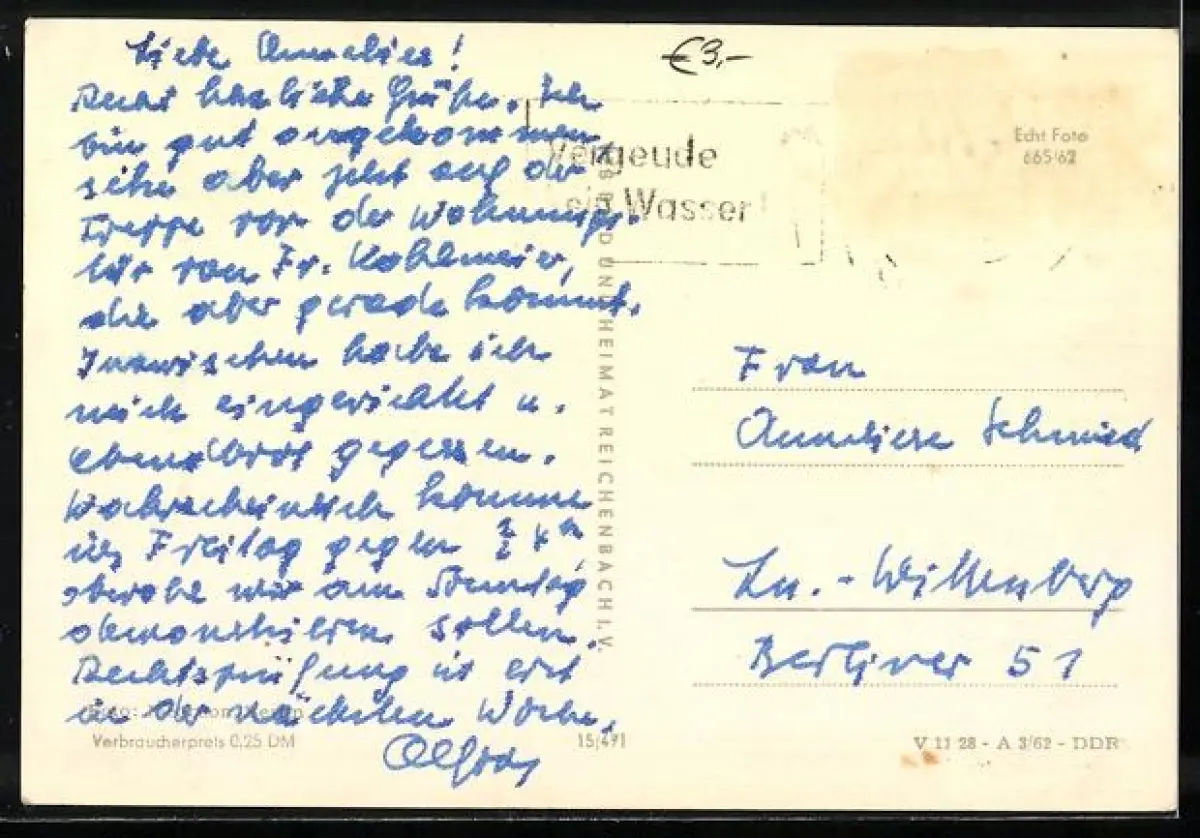 Liebe Anneliese!
Recht herzliche Grüße. Ich
bin gut angekommen
sitze aber jetzt auf der
Treppe vor der Wohnungs-
tür von Fr. Kohlmeier,
die aber gerade kommt.
Inzwischen habe ich
mich eingerichtet u.
Abendbrot gegessen.
Wahrscheinlich komme
ich Freitag gegen
obwohl wir am Sonntag
demonstrieren sollen.
Rechtsprüfung ist erst
in der nächsten Woche.
€3,-
Vergeude
Wasser
Echt Foto
665/62
BILD UND HEIMAT REICHENBACH I. V.
Frau
Anneliese Schmied
Lu.-Wittenberg
Berliner 51
Verbraucherpreis 0,25 DM
15/491
V 11 28 - A 3/62 - DDR